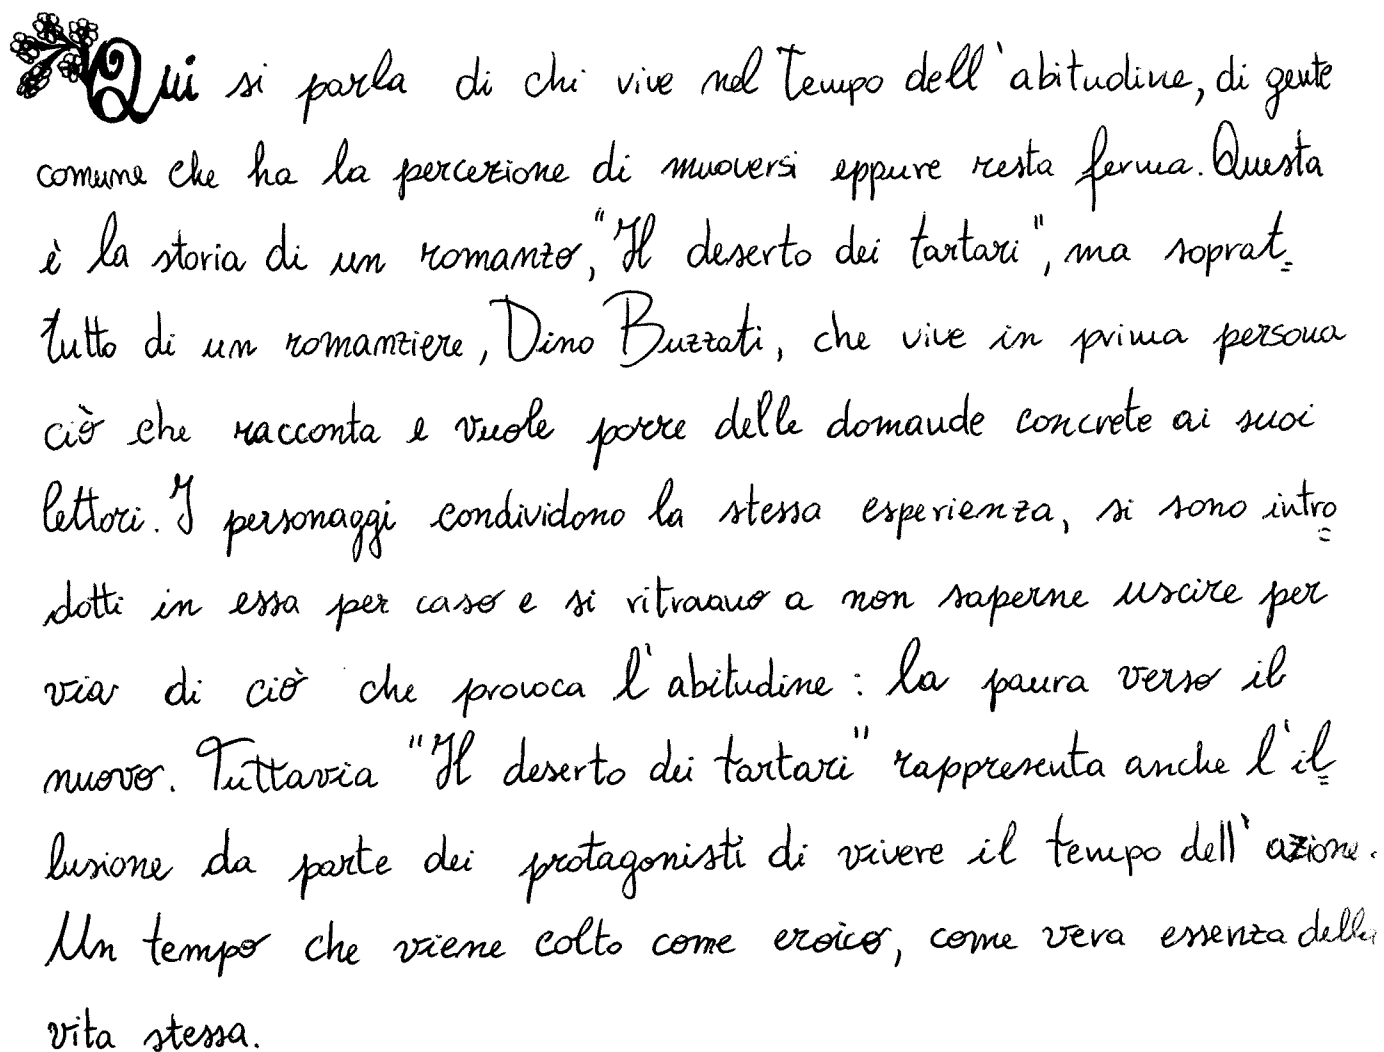 Qui si parla di chi vive nel Tempo dell'abitudine, di gente
comune che ha la percezione di muoversi eppure resta ferma. Questa
è la storia di un romanzo, "Il deserto dei tartari", ma soprat=
tutto di un romanziere, Dino Buzzati, che vive in prima persona
ciò che racconta e vuole porre delle domande concrete ai suoi
lettori. I personaggi condividono la stessa esperienza, si sono intro=
dotti in essa per caso e si ritrovano a non saperne uscire per
via di ciò che provoca l'abitudine: la paura verso il
nuovo. Tuttavia "Il deserto dei tartari" rappresenta anche l'il=
lusione da parte dei protagonisti di vivere il tempo dell'azione.
Un tempo che viene colto come eroico, come vera essenza della
vita stessa.